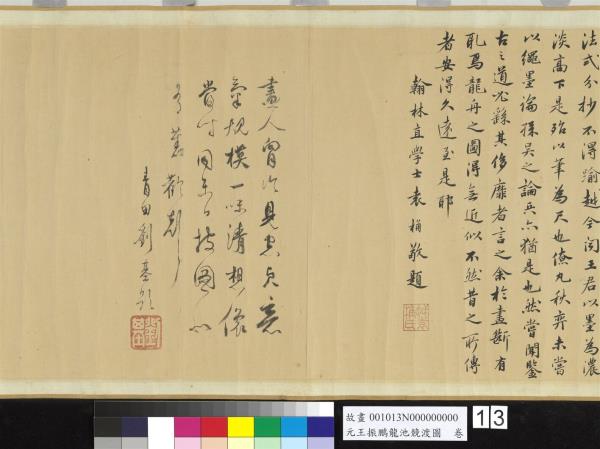 法式分抄不得踰越今聞王君以墨為濃
淡高下是殆以筆為尺也僚丸秋弈未嘗
以繩墨論孫吳之論兵亦猶是也然嘗聞鑒
古之道必繇其侈靡者言之余於畫斷有
取焉龍舟之圖得無近似不然昔之所傳
者安得久遠至是耶
翰林直學士袁桷敬題
畫人胷次見忠貞意
氣規模一味清想像
當時同
持圖
青田劉基題
故畫 001013N000000000
元王振鵬龍池競渡圖 卷
13